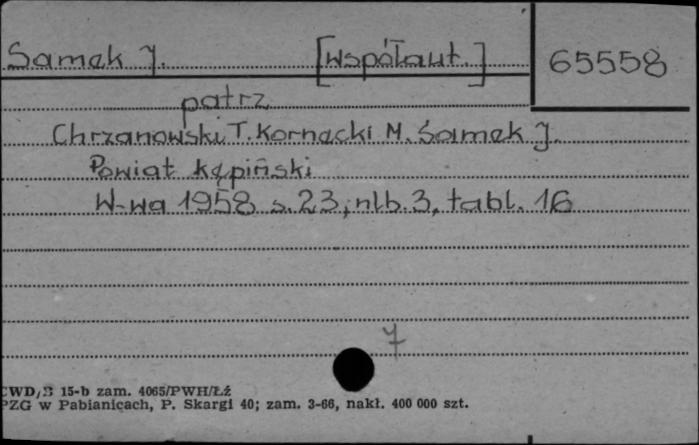 Samek J. [Współaut.] 65558
patrz
Chrzanowski T. Kornecki M. Samek J.
Powiat kępiński
W-wa 1958 s. 23, nlb. 3, tabl. 16
7
CWD/B 15-b zam. 4065/PWH/Łź
PZG w Pabianicach, P. Skargi 40; zam. 3-66, nakł. 400 000 szt.